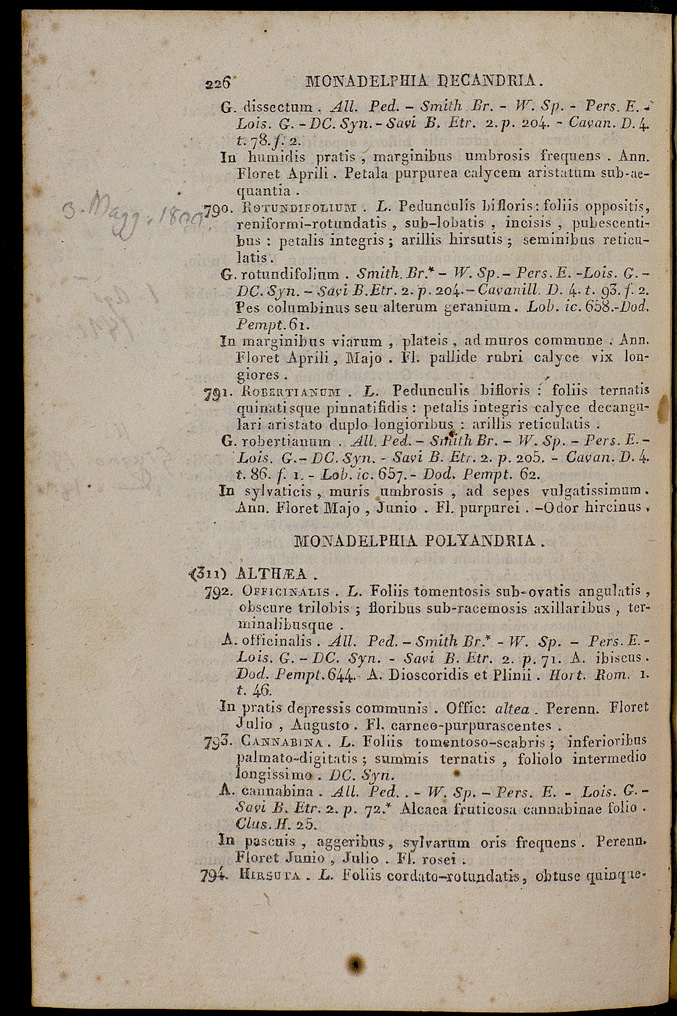 226 MONADELPHIA DECANDRIA.
G. dissectum. All. Ped. – Smith Br. - W. Sp. - Pers. E. -
Lois. G. - DC. Syn. - Savi B. Etr. 2. p. 204. - Cavan. D. 4.
t. 78. f. 2.
In humidis pratis, marginibus umbrosis frequens. Ann.
Floret Aprili. Petala purpurea calycem aristatum sub-ae-
quantia.
3. Magg.
790. ROTUNDIFOLIUM. L. Pedunculis bifloris: foliis oppositis,
reniformi-rotundatis, sub-lobatis, incisis, pubescenti-
bus: petalis integris; arillis hirsutis; seminibus reticu-
latis.
G. rotundifolium. Smith. Br.* – W. Sp. – Pers. E. -Lois. G. –
DC. Syn. – Savi B. Etr. 2. p. 204. – Cavanill. D. 4. t. 93. f. 2.
Pes columbinus seu alterum geranium. Lob. ic. 658.-Dod.
Pempt. 61.
In marginibus viarum, plateis, ad muros commune. Ann.
Floret Aprili, Majo. Fl. pallide rubri calyce vix lon-
giores.
791. ROBERTIANUM. L. Pedunculis bifloris: foliis ternatis
quinatisque pinnatifidis: petalis integris calyce decangu-
lari aristato duplo longioribus: arillis reticulatis.
G. robertianum. All. Ped. – Smith Br. – W. Sp. – Pers. E. –
Lois. G. – DC. Syn. - Savi B. Etr. 2. p. 205. – Cavan. D. 4.
t. 86. f. 1. - Lob. ic. 657. - Dod. Pempt. 62.
In sylvaticis, muris umbrosis, ad sepes vulgatissimum.
Ann. Floret Majo, Junio. Fl. purpurei. –Odor hircinus.
MONADELPHIA POLYANDRIA.
(311) ALTHÆA.
792. OFFICINALIS. L. Foliis tomentosis sub-ovatis angulatis,
obscure trilobis; floribus sub-racemosis axillaribus, ter-
minalibusque.
A. officinalis. All. Ped. – Smith Br.* - W. Sp. – Pers. E. -
Lois. G. – DC. Syn. - Savi B. Etr. 2. p. 71. A. ibiscus.
Dod. Pempt. 644. A. Dioscoridis et Plinii. Hort. Rom. 1.
t. 46.
In pratis depressis communis. Offic: altea. Perenn. Floret
Julio, Augusto. Fl. carneo-purpurascentes.
793. CANNABINA. L. Foliis tomentoso-scabris; inferioribus
palmato-digitatis; summis ternatis, foliolo intermedio
longissimo. DC. Syn.
A. cannabina. All. Ped. . - W. Sp. – Pers. E. - Lois. G. –
Savi B. Etr. 2. p. 72.* Alcaea fruticosa cannabinae folio.
Clus. H. 25.
In pascuis, aggeribus, sylvarum oris frequens. Perenn.
Floret Junio, Julio. Fl. rosei.
794. HIRSUTA. L. Foliis cordato-rotundatis, obtuse quinque-